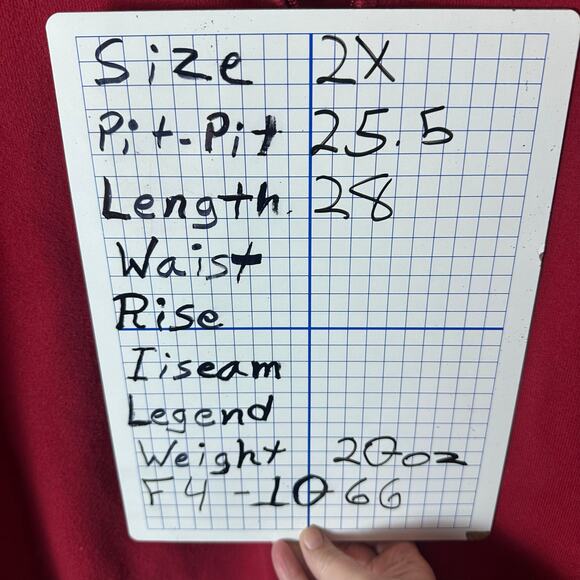 Size 2X
Pit-Pit 25.5
Length. 28
Waist
Rise
Iiseam
Legend
Weight 20oz
F4-1066